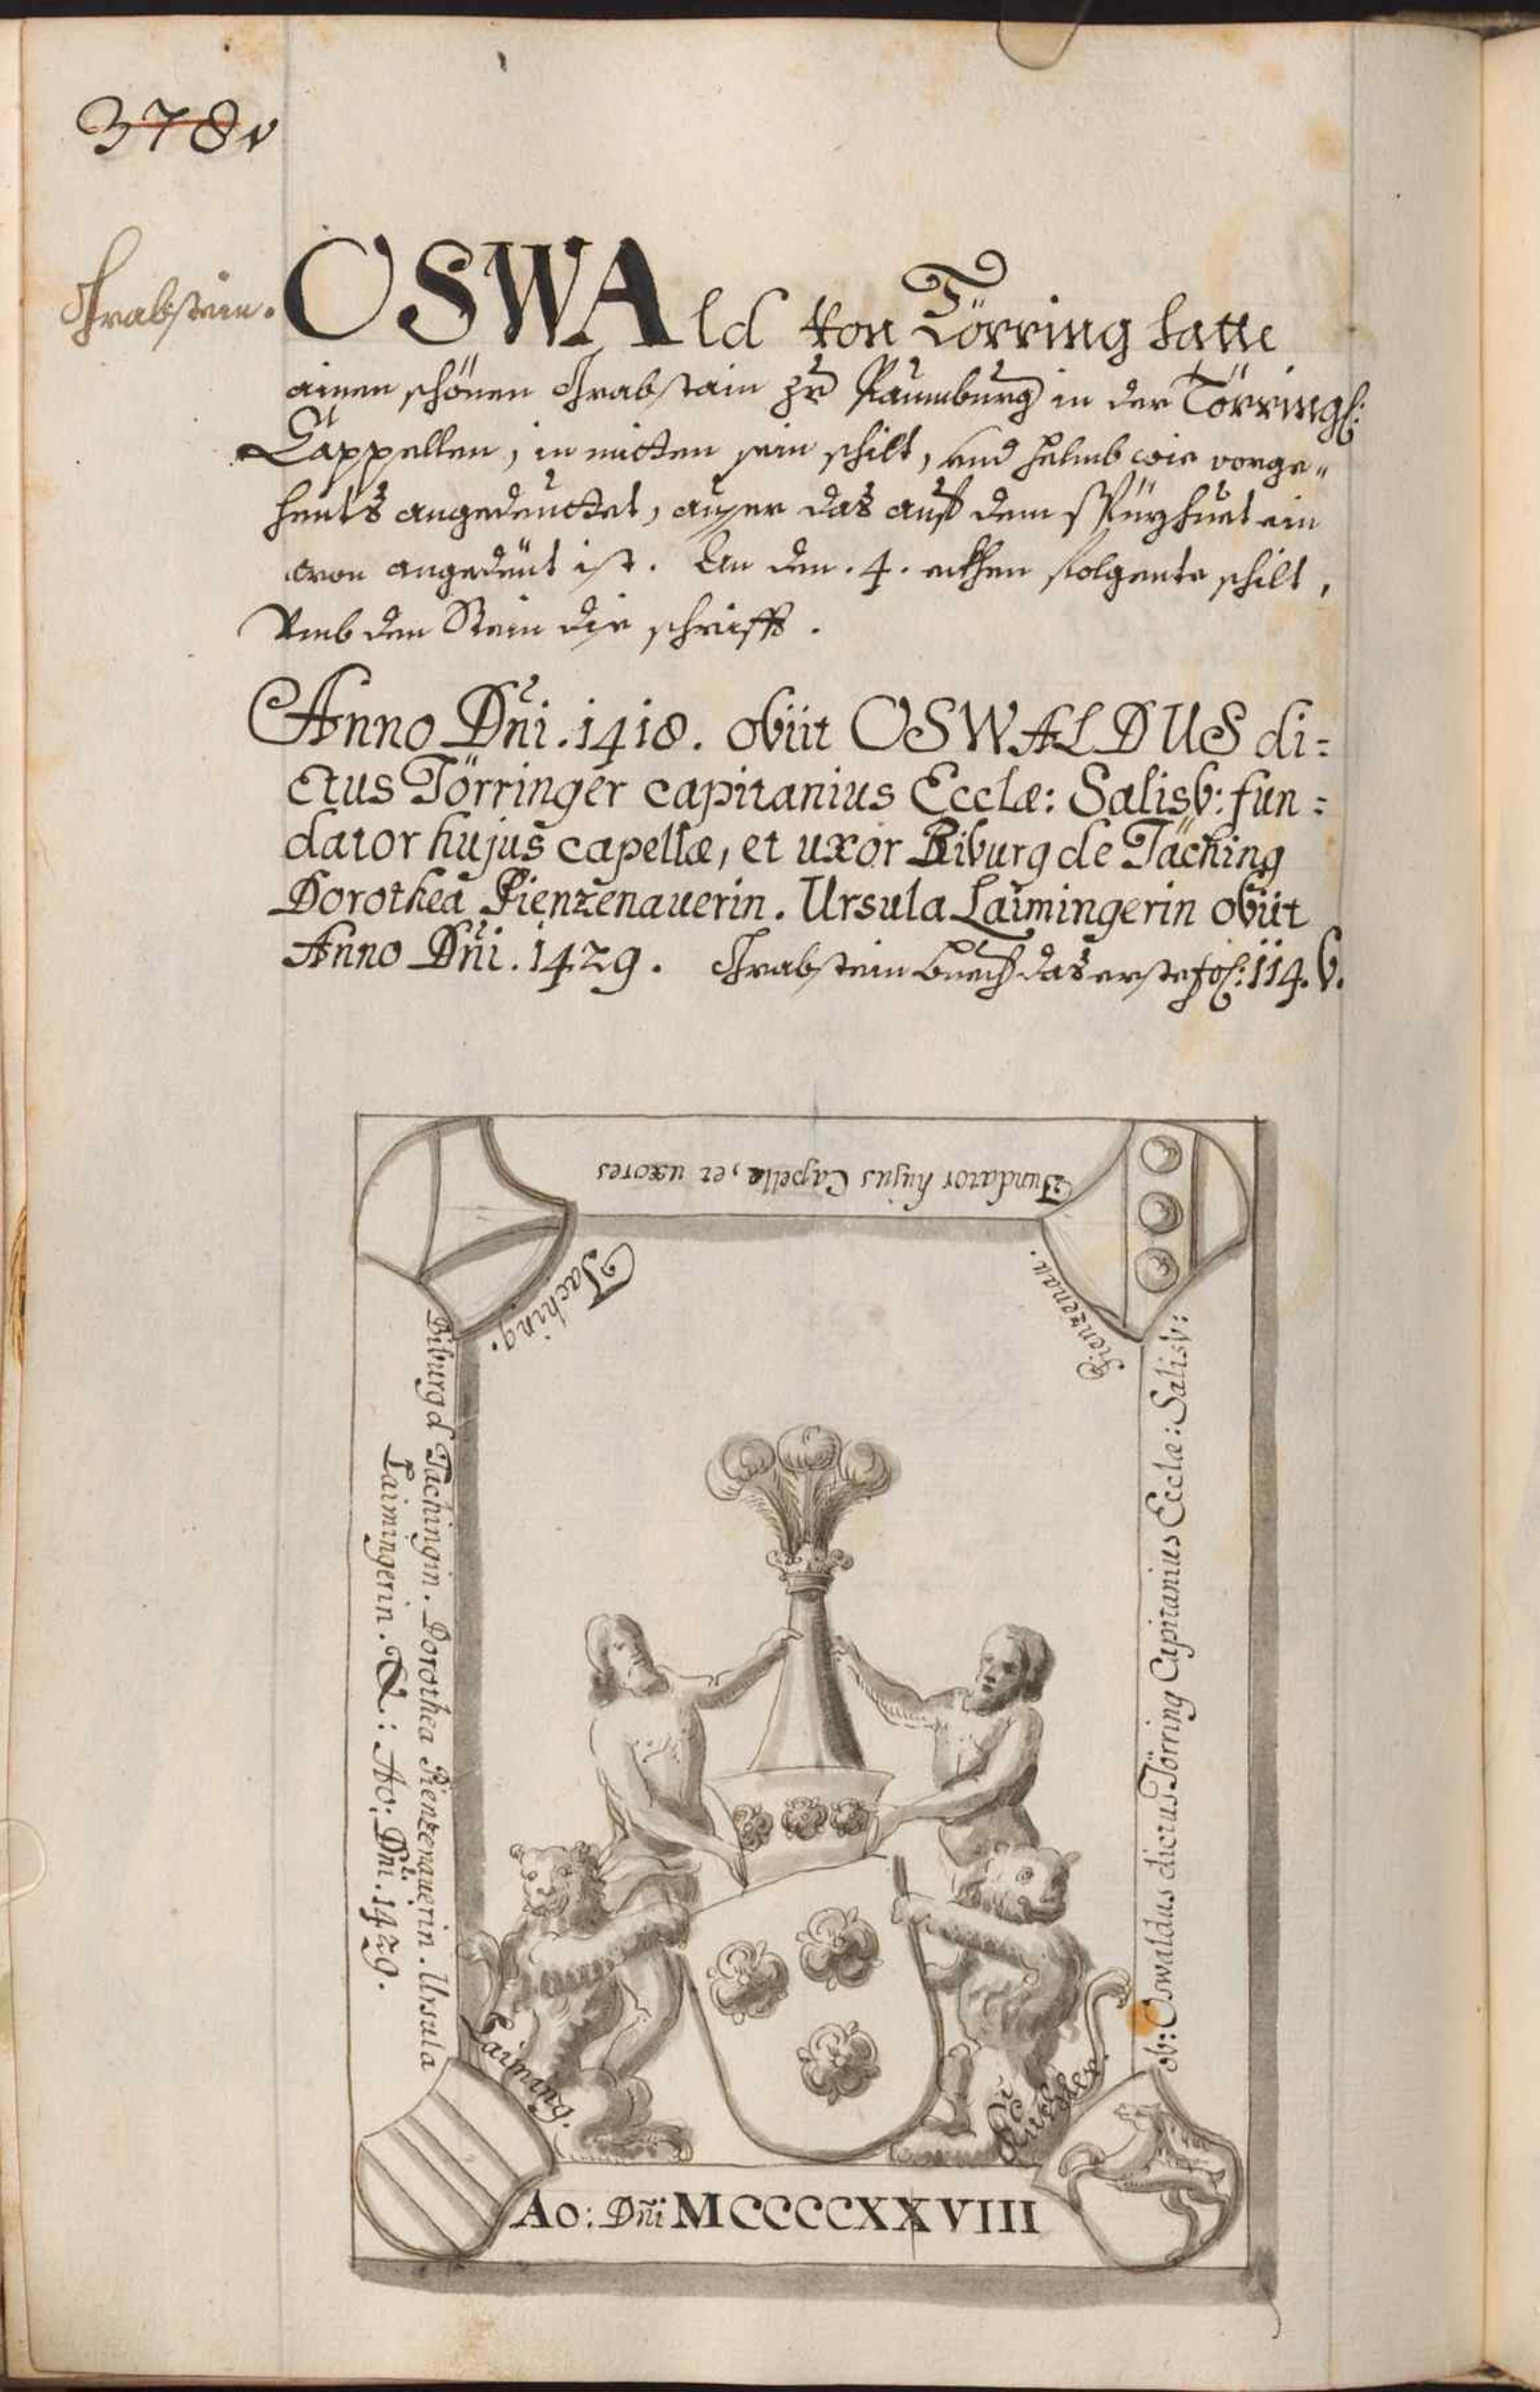 378v
Grabstein.
OSWAld von Törring hatte
ainen schönen Grabstain zu Paumburg in der Törringl:
Cappellen, in mitten sein schilt, und helmb wie vorge„
hents angedeuttet, ausser das auf dem spüzhuet ein
cron angedeut ist. An den .4. eckhen folgente schilt,
Umb den Stein die schrifft.
Anno Dñi .1418. obiit OSWALDUS di=
ctus Törringer capitanius Ecclæ: Salisb: fun=
dator hujus capellæ, et uxor Biburg de Taching
Dorothea Pienzenauerin. Ursula Laimingerin obiit
Anno Dñi .1429. Grabstein buech das erste fol: 114. b.
Fundator hujus Capellæ, et uxores
Taching.
Pienzenau.
Biburg d Tachingin. Dorothea Pienzenauerin. Ursula
Laimingerin. Q.: Ao: Dñi .1429.
ob: Oswaldus dictus Törring Capitanius Ecclæ: Salisb:
Laiming.
Ao: Dñi MCCCCXXVIII